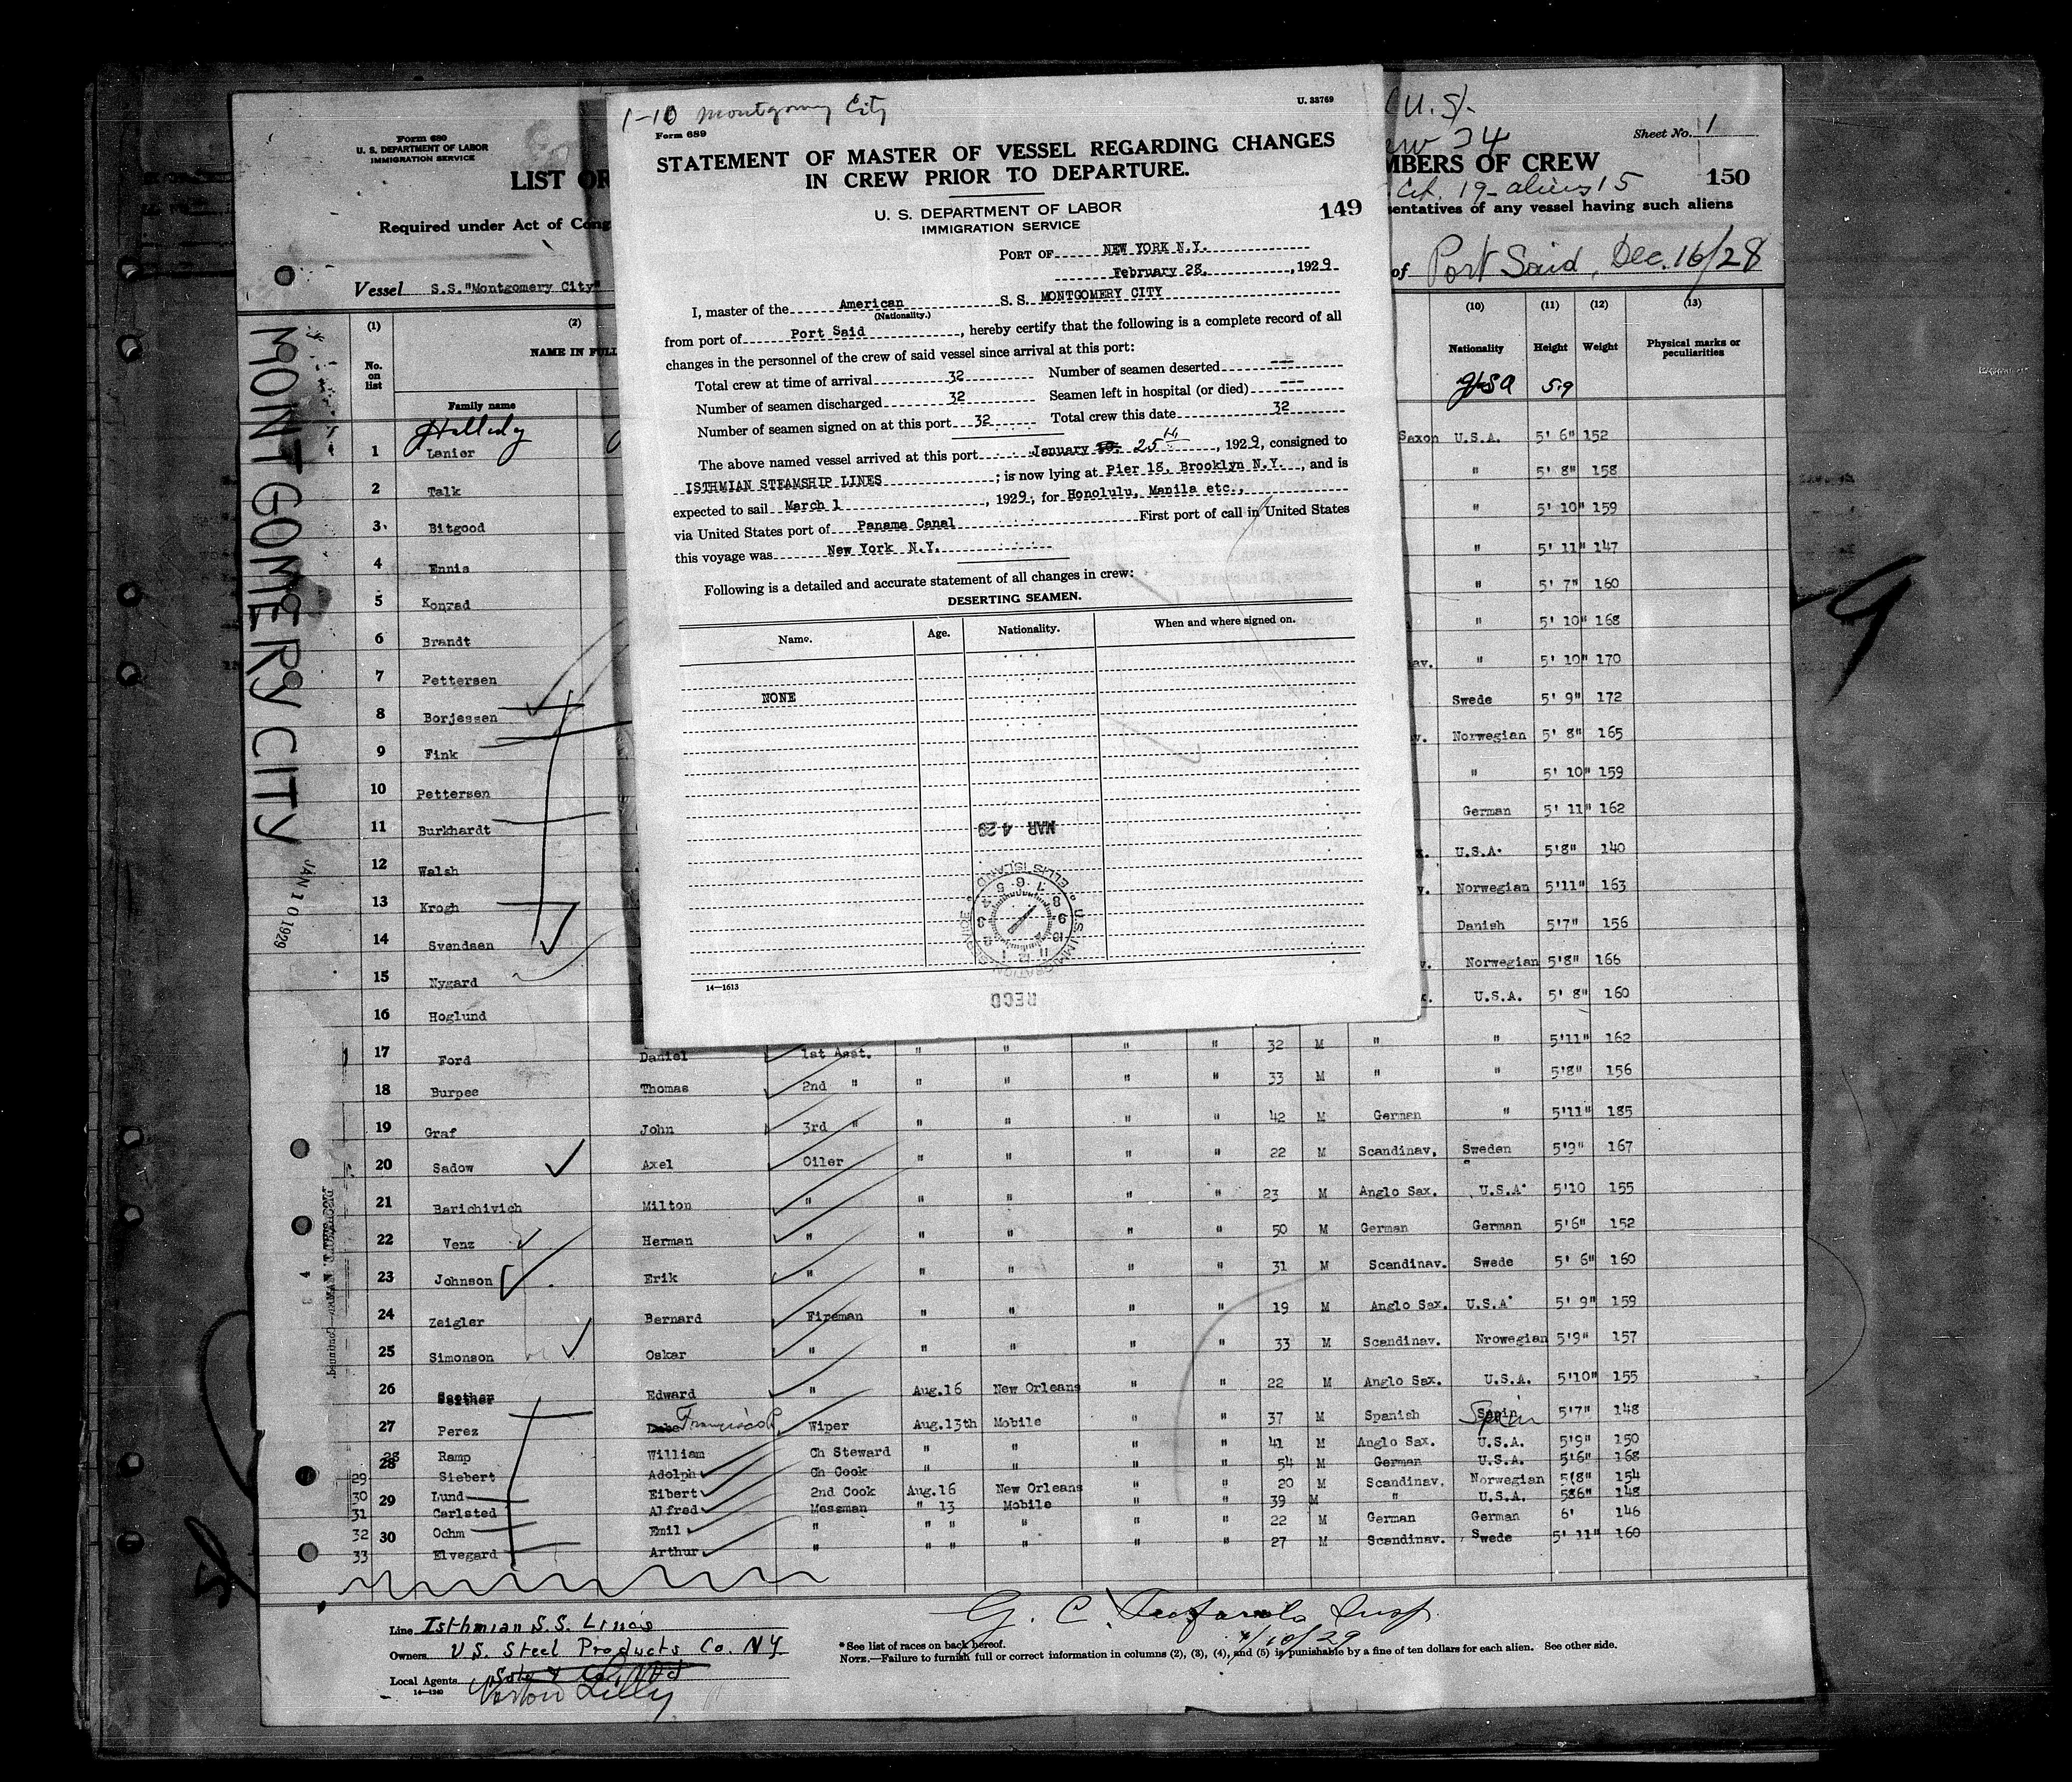 1-10 Montgomery City
U. 33769
Form 689
STATEMENT OF MASTER OF VESSEL REGARDING CHANGES
IN CREW PRIOR TO DEPARTURE.
U. S. DEPARTMENT OF LABOR
IMMIGRATION SERVICE
149
PORT OF NEW YORK N.Y.
February 28, 1929
I, master of the American S.S. MONTGOMERY CITY
(Nationality.)
from port of Port Said, hereby certify that the following is a complete record of all
changes in the personnel of the crew of said vessel since arrival at this port:
Total crew at time of arrival 32 Number of seamen deserted ---
Number of seamen discharged 32 Seamen left in hospital (or died) ---
Number of seamen signed on at this port 32 Total crew this date 32
The above named vessel arrived at this port January 25th, 1929, consigned to
ISTHMIAN STEAMSHIP LINES; is now lying at Pier 18, Brooklyn N.Y., and is
expected to sail March 1, 1929, for Honolulu, Manila etc.,
via United States port of Panama Canal First port of call in United States
this voyage was New York N.Y.
Following is a detailed and accurate statement of all changes in crew:
DESERTING SEAMEN.
Name. Age. Nationality. When and where signed on.
NONE
MAR 4 29
U.S. IMMIGRATION SERVICE ELLIS ISLAND
RECD
14—1613
Form 689
U. S. DEPARTMENT OF LABOR
IMMIGRATION SERVICE
LIST OR
(U.S).
34
Sheet No. 1
MBERS OF CREW
150
Cit. 19- aliens 15
Required under Act of Cong
sentatives of any vessel having such aliens
Vessel S.S."Montgomery City"
of Port Said, Dec. 16/28
MONTGOMERY CITY
JAN 10 1929
(1) (2) (10) (11) (12) (13)
No. on list NAME IN FULL Nationality Height Weight Physical marks or peculiarities
Family name
USA 5.9
1 Lanier Saxon U.S.A. 5' 6" 152
2 Talk " 5' 8" 158
3 Bitgood " 5' 10" 159
4 Ennis " 5' 11" 147
5 Konrad " 5' 7" 160
6 Brandt " 5' 10" 168
7 Pettersen av. " 5' 10" 170
8 Borjessen Swede 5' 9" 172
9 Fink v. Norwegian 5' 8" 165
10 Pettersen " 5' 10" 159
11 Burkhardt German 5' 11" 162
12 Walsh U.S.A. 5'8" 140
13 Krogh v. Norwegian 5'11" 163
14 Svendsen Danish 5'7" 156
15 Nygard v. Norwegian 5'8" 166
16 Hoglund U.S.A. 5' 8" 160
17 Ford Daniel 1st Asst. " " " " 32 M " " 5'11" 162
18 Burpee Thomas 2nd " " " " " 33 M " " 5'8" 156
19 Graf John 3rd " " " " " 42 M German " 5'11" 185
20 Sadow Axel Oiler " " " " 22 M Scandinav. Sweden 5'9" 167
21 Barichivich Milton " " " " " 23 M Anglo Sax. U.S.A. 5'10 155
22 Venz Herman " " " " " 50 M German German 5'6" 152
23 Johnson Erik " " " " " 31 M Scandinav. Swede 5' 6" 160
24 Zeigler Bernard Fireman " " " " 19 M Anglo Sax. U.S.A. 5' 9" 159
25 Simonson Oskar " " " " " 33 M Scandinav. Nrowegian 5'9" 157
26 Edward " Aug.16 New Orleans " " 22 M Anglo Sax. U.S.A. 5'10" 155
27 Perez Francisco P. Wiper Aug.13th Mobile " " 37 M Spanish Spain 5'7" 148
28 Ramp William Ch Steward " " " " 41 M Anglo Sax. U.S.A. 5'9" 150
29 Siebert Adolph Ch Cook " " " " 54 M German U.S.A. 5'6" 168
30 29 Lund Eibert 2nd Cook Aug.16 New Orleans " " 20 M Scandinav. Norwegian 5'8" 154
31 Carlsted Alfred Messman " 13 Mobile " " 39 M " U.S.A. 5'6" 148
32 30 Ochm Emil " " " " " " 22 M German German 6' 146
33 Elvegard Arthur " " " " " " 27 M Scandinav. Swede 5' 11" 160
Line Isthmian S.S. Lines
Owners U.S. Steel Products Co. NY
Local Agents Norton Lilly
14—1240
*See list of races on back hereof.
NOTE.—Failure to furnish full or correct information in columns (2), (3), (4), and (5) is punishable by a fine of ten dollars for each alien. See other side.